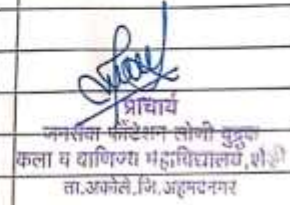 प्राचार्य
जनसेवा फौंडेशन लोणी बुद्रुक
कला व वाणिज्य महाविद्यालय,
ता.अकोले,जि.अहमदनगर